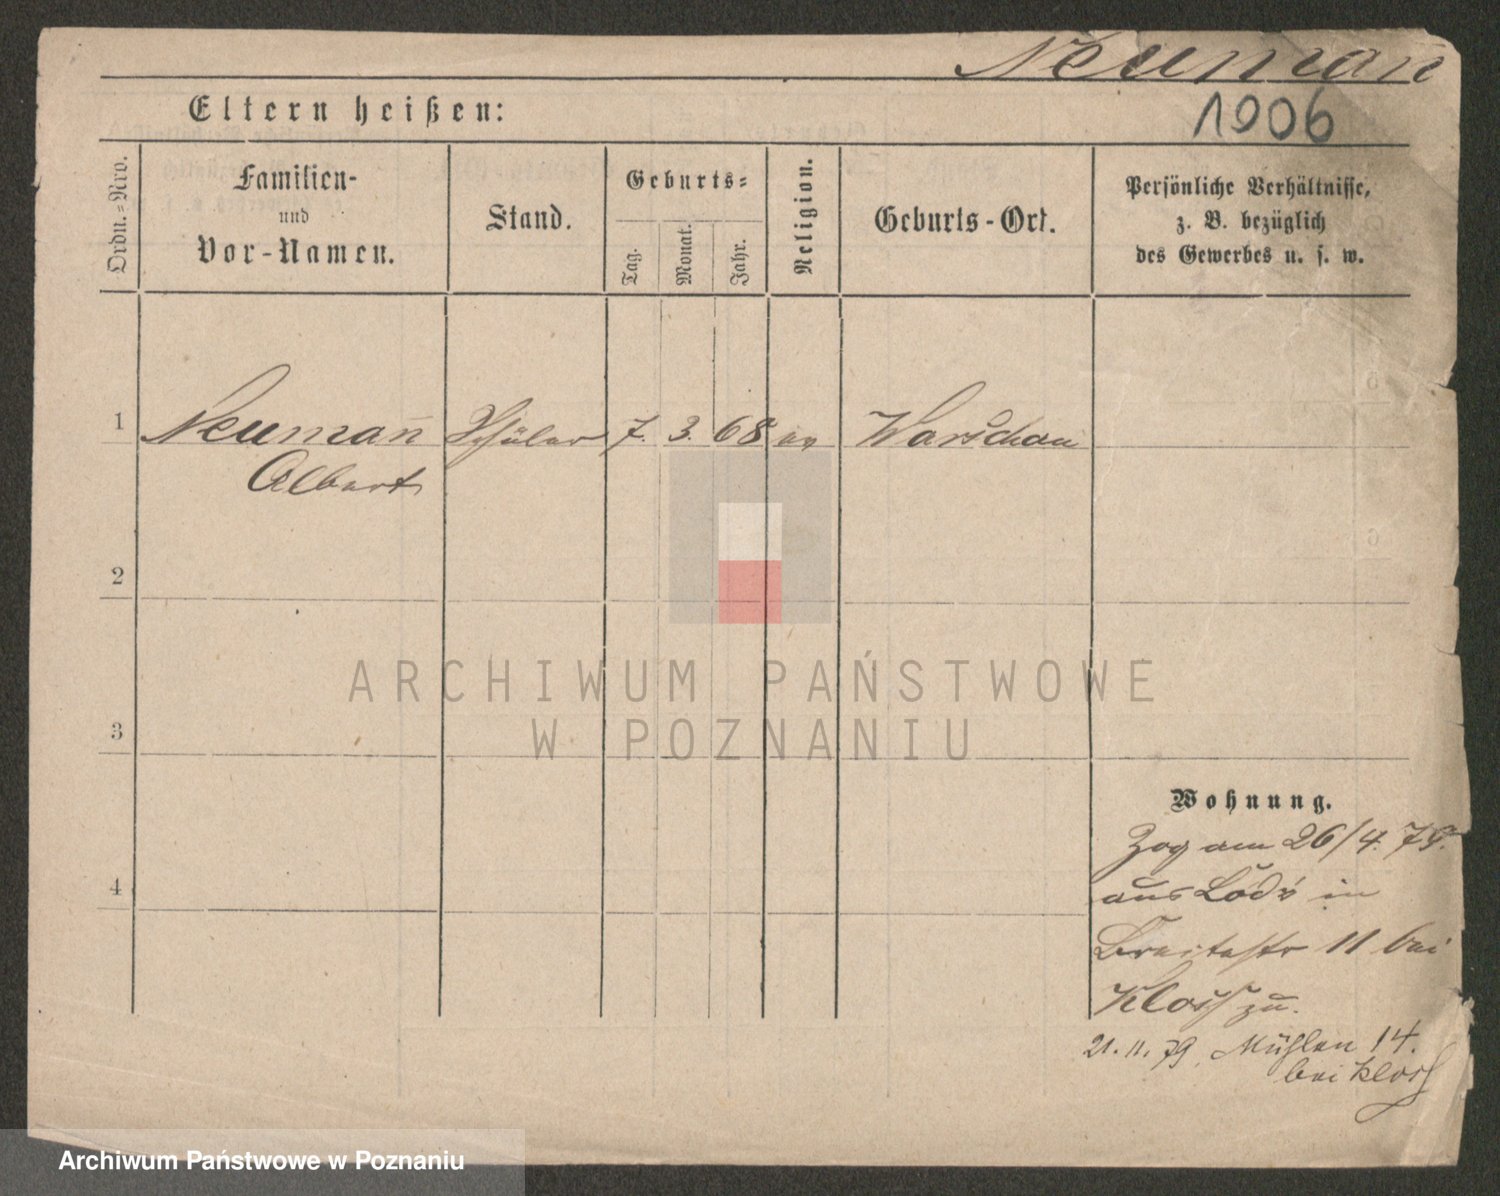 Neumañ
1906
Eltern heißen:
Ordn.=Nro.
Familien-
und
Vor-Namen.
Stand.
Geburts=
Tag.
Monat.
Jahr.
Religion.
Geburts-Ort.
Persönliche Verhältnisse,
z. B. bezüglich
des Gewerbes u. s. w.
1 Neumañ Schüler 7. 3. 68 ev Warschau
Albert
2
3
4
ARCHIWUM PAŃSTWOWE
W POZNANIU
Wohnung.
Zog am 26/4. 79.
aus Lódź in
Breitestr 11 bei
Kloss zu.
21.11.79. Mühlen 14.
bei Kloss
Archiwum Państwowe w Poznaniu